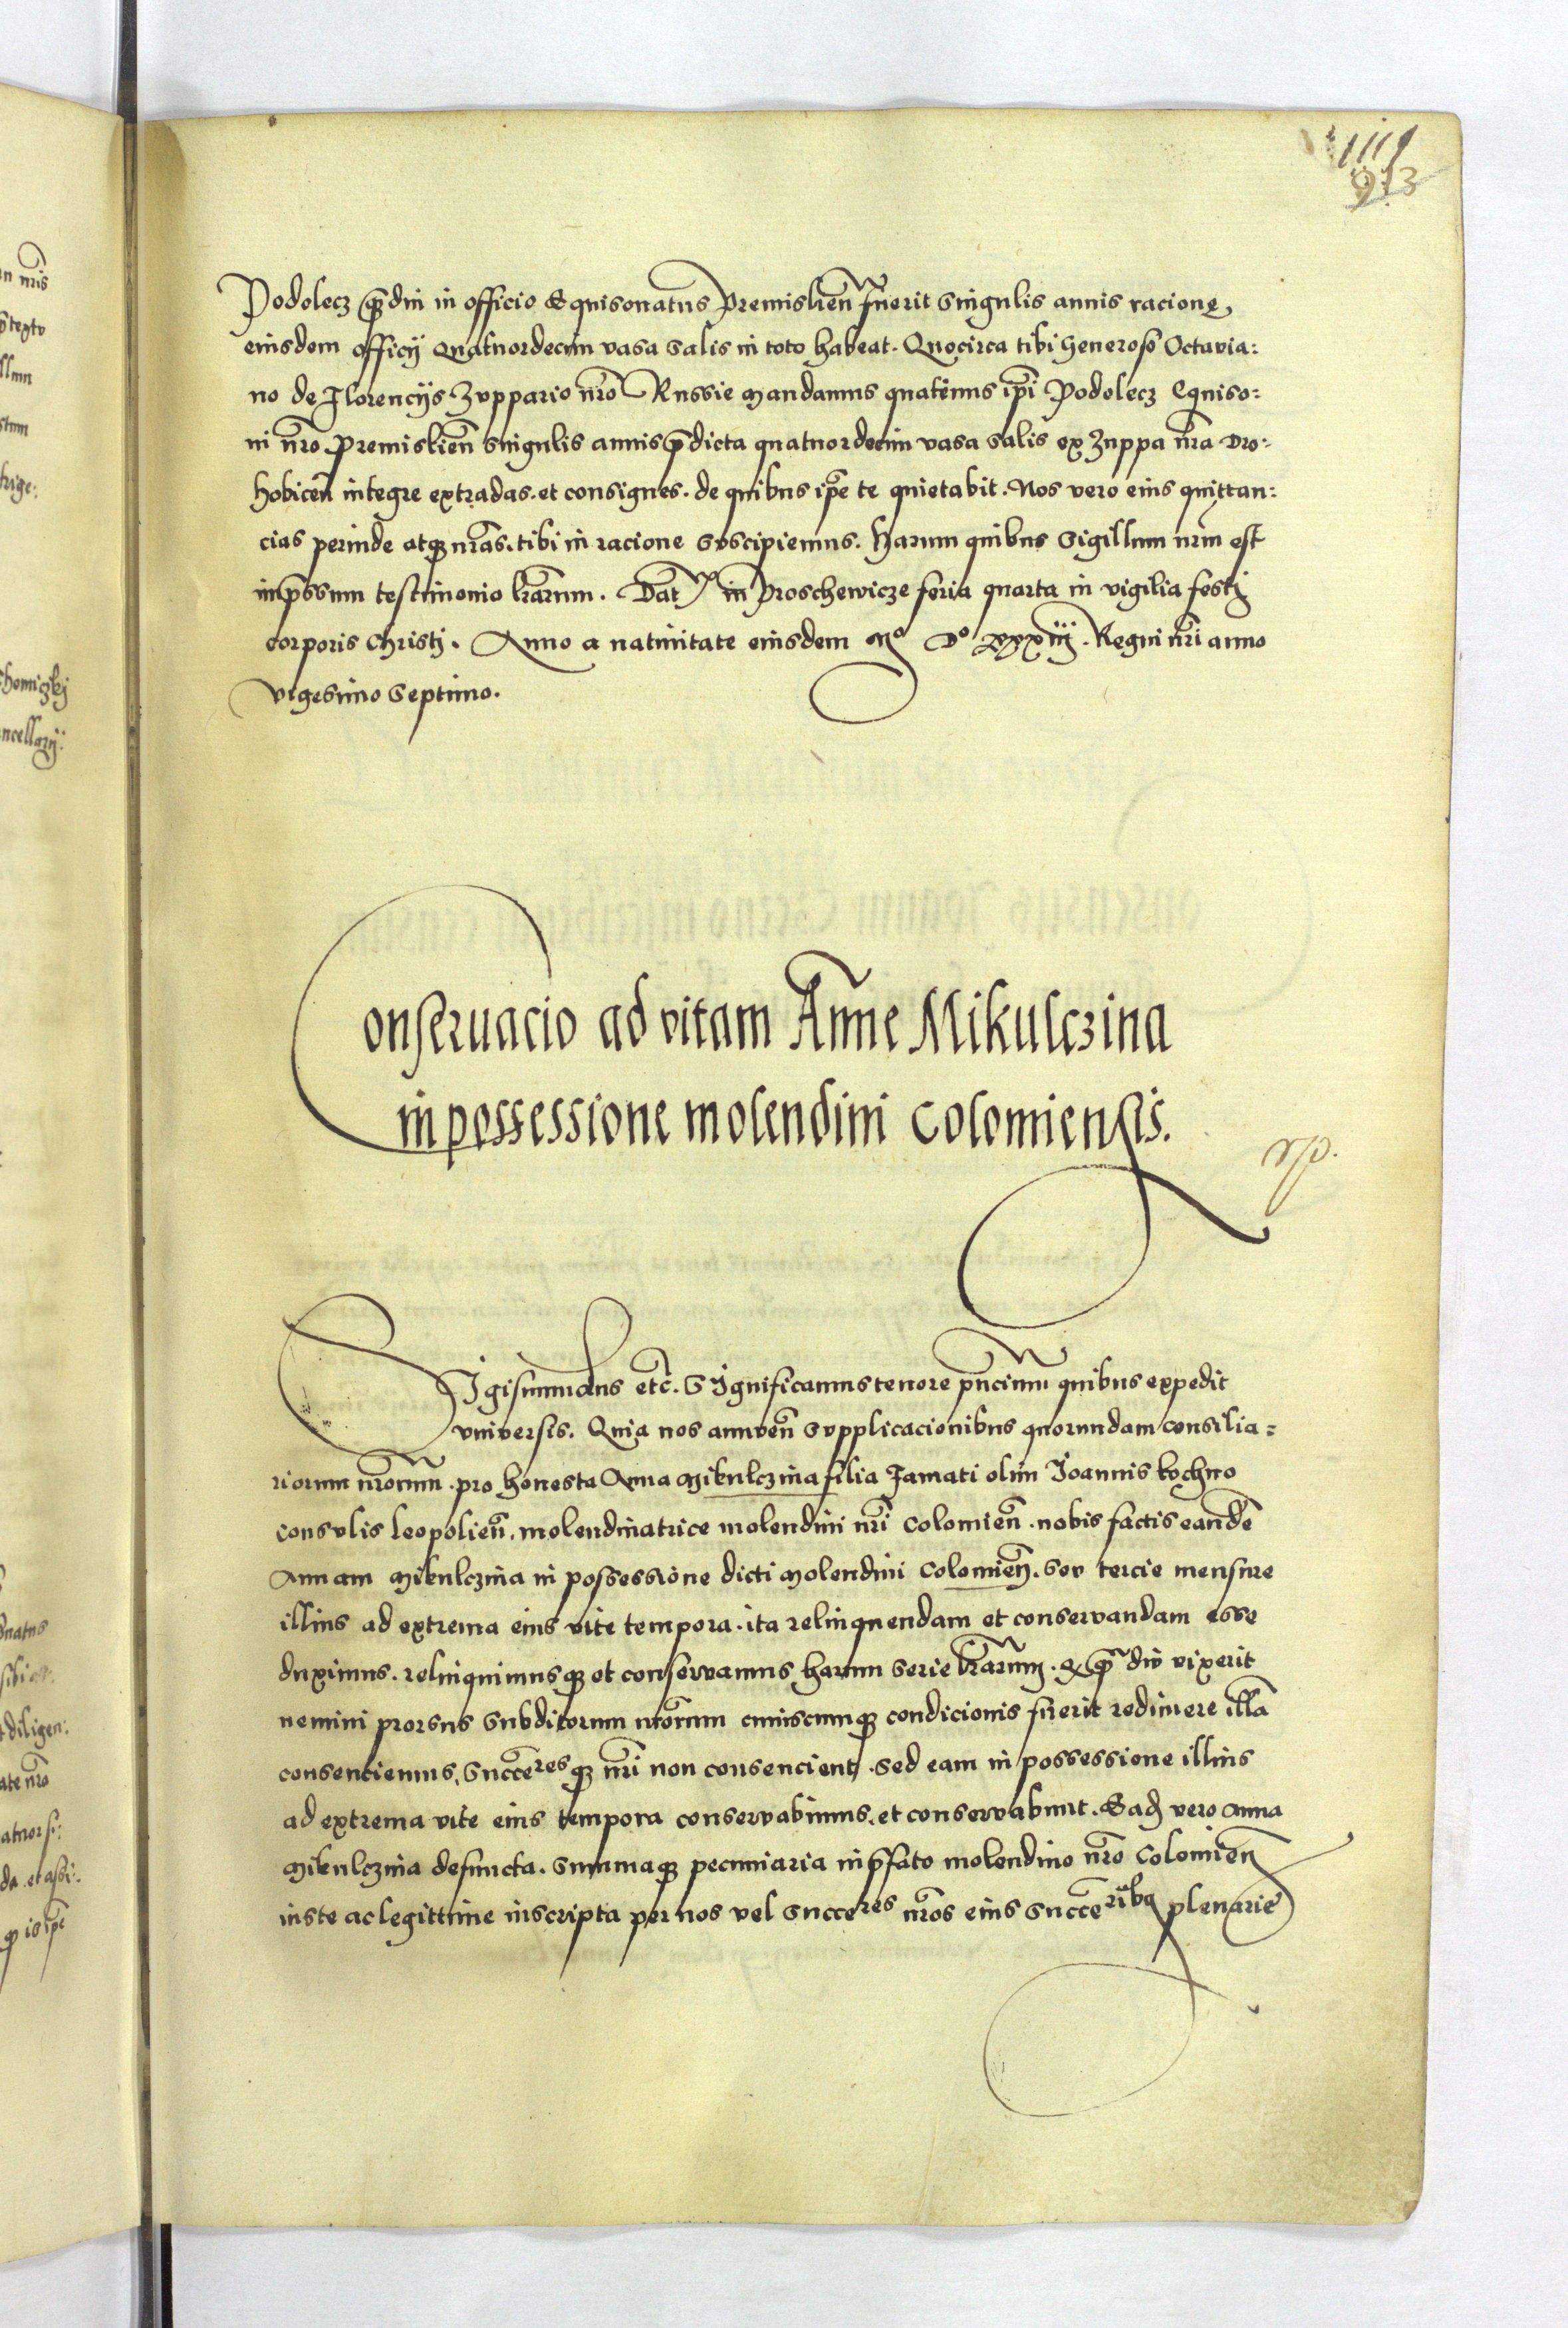 1111
913
Podolecz q̃mdiu in officio Equisonatus Premislien̄ fuerit singulis annis racione
eiusdem officij quatuordecim vasa salis in toto habeat. Quocirca tibi Generoso Octavia:
no de Florencijs Zuppario nr̃o Russie mandamus quatenus ip̃i Podolecz Equiso:
ni nr̃o Premislien̄ singulis annis p̃dicta quatuordecim vasa salis ex zuppa nr̃a Dro:
hobicen̄ integre extradas. et consignes. de quibus ip̃e te quietabit. Nos vero eius quittan:
cias perinde atq3 nr̃as. tibi in racione suscipiemus. Harum quibus sigillum nr̃m est
imp̃ssum testimonio lr̃arum. Dat̃ in Proschewicze feria quarta in vigilia festj
corporis Christj. Anno a nativitate eiusdem Mº Dº xxxiij. Regni nr̃i anno
vigesimo septimo.
Conservacio ad vitam Anne Mikulczina
in possessione molendini Colomiensis.
Sigismundus etc̃. Significamus tenore p̃ncium quibus expedit
vniversis. Quia nos annuen̄ supplicacionibus quorundam consilia:
riorum nr̃orum. pro honesta Anna Mikulczina filia famati olim Joannis kochno
consulis leopolien̄. molendinatrice molendini nr̃i Colomien̄. nobis factis eandē
Annam Mikulczina in possessione dicti molendini Colomien̄. seu tercie mensure
illius ad extrema eius vite tempora. ita relinquendam et conservandam esse
duximus. relinquimusq3 et conservamus harum serie lr̃arum. Et q̃ diu vixerit
nemini prorsus subditorum nr̃orum cuiuscumq3 condicionis fuerit redimere illā
consenciemus, succc̃resq3 nr̃i non consencient. sed eam in possessione illius
ad extrema vite eius tempora conservabimus. et conservabunt. Eadē vero Anna
Mikulczina defuncta. summaq3 pecuniaria in p̃fato molendino nr̃o Colomien̄
iuste ac legittime inscripta per nos vel succc̃res nr̃os eius succc̃ribq3 plenarie